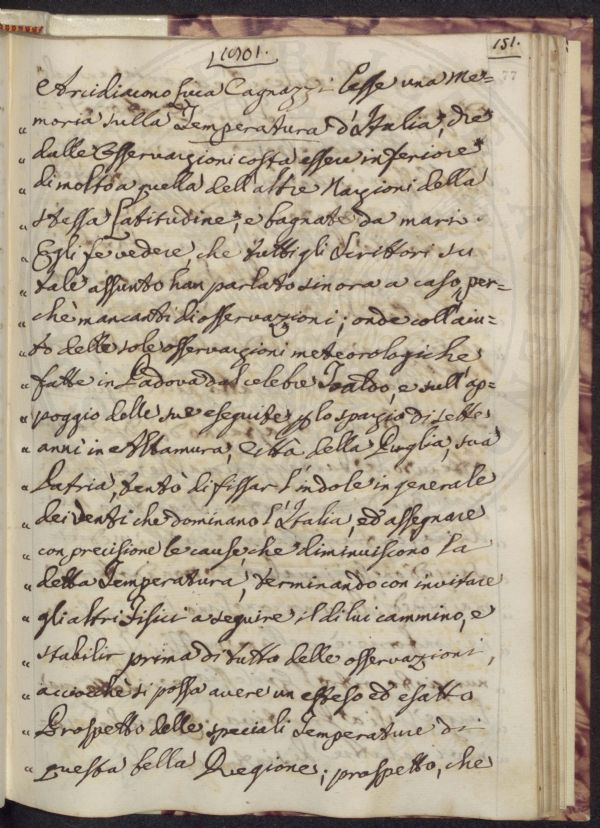 1801.
151.
77
Arcidiacono Luca Cagnazzi lesse una Me-
" moria sulla Temperatura d'Italia, che
" dalle Osservazioni costa essere inferiore
" di molto a quella dell'altre Nazioni della
" stessa Latitudine, e bagnate da mari.
" Egli fe vedere, che tutti gli Scrittori su
" tale assunto han parlato sinora a caso, per-
" chè mancanti di osservazioni; onde coll'aiu-
" to delle sole osservazioni meteorologiche
" fatte in Padova dal celebre Toaldo, e sull'ap-
" poggio delle sue eseguite per lo spazio di sette
" anni in Altamura, Città della Puglia, sua
" Patria, tentò di fissar l'indole in generale
" dei venti che dominano l'Italia, ed assegnare
" con precisione le cause, che diminuiscono la
" detta Temperatura, terminando con invitare
" gli altri Fisici a seguire il di lui cammino, e
" stabilir prima di tutto delle osservazioni,
" acciocchè si possa avere un esteso ed esatto
" Prospetto delle speciali Temperature di
" questa bella Regione; prospetto, che